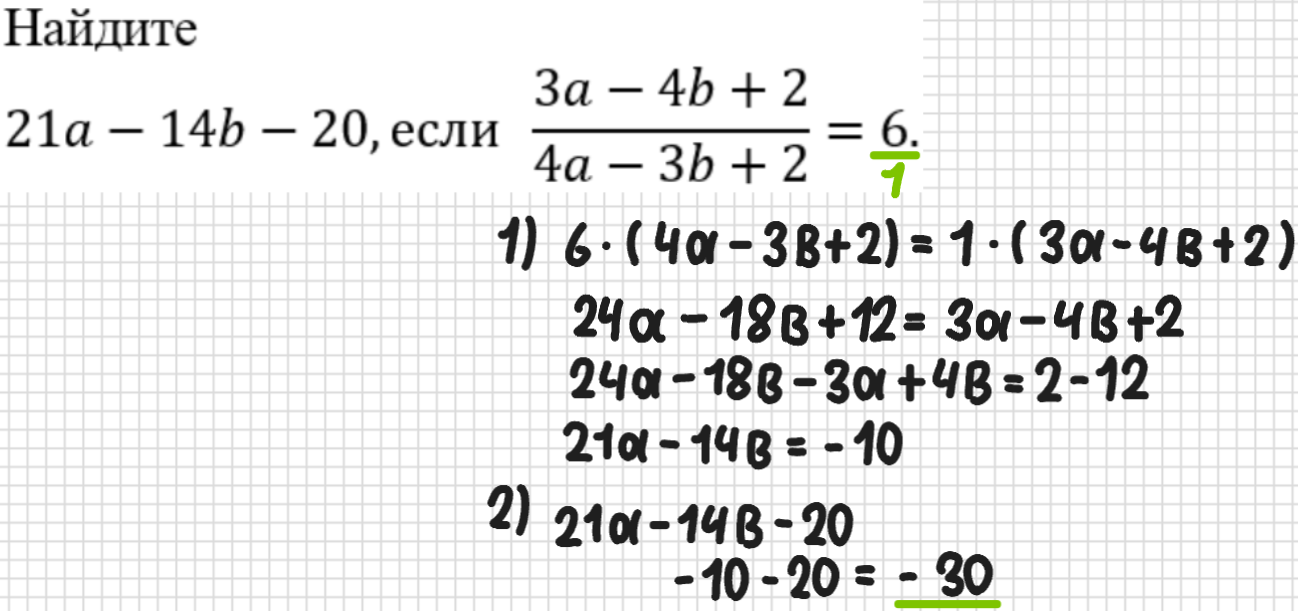 Найдите
21a − 14b − 20, если (3a − 4b + 2)/(4a − 3b + 2) = 6.
1
1) 6·(4a-3в+2)=1·(3a-4в+2)
24a-18в+12=3a-4в+2
24a-18в-3a+4в=2-12
21a-14в=-10
2) 21a-14в-20
-10-20=-30